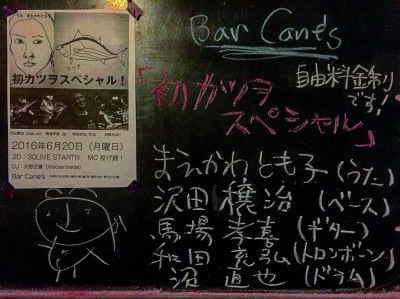 初カツヲスペシャル!
2016年6月20日(月曜日)
20:30LIVE START!!! MC 投げ銭!
Bar Cane's
Bar Cane's
自由料金制
です!
「初カツヲ
スペシャル」
まえかわとも子(うた)
沢田穣治(ベース)
馬場孝喜(ギター)
和田充弘(トロンボーン)
沼直也(ドラム)